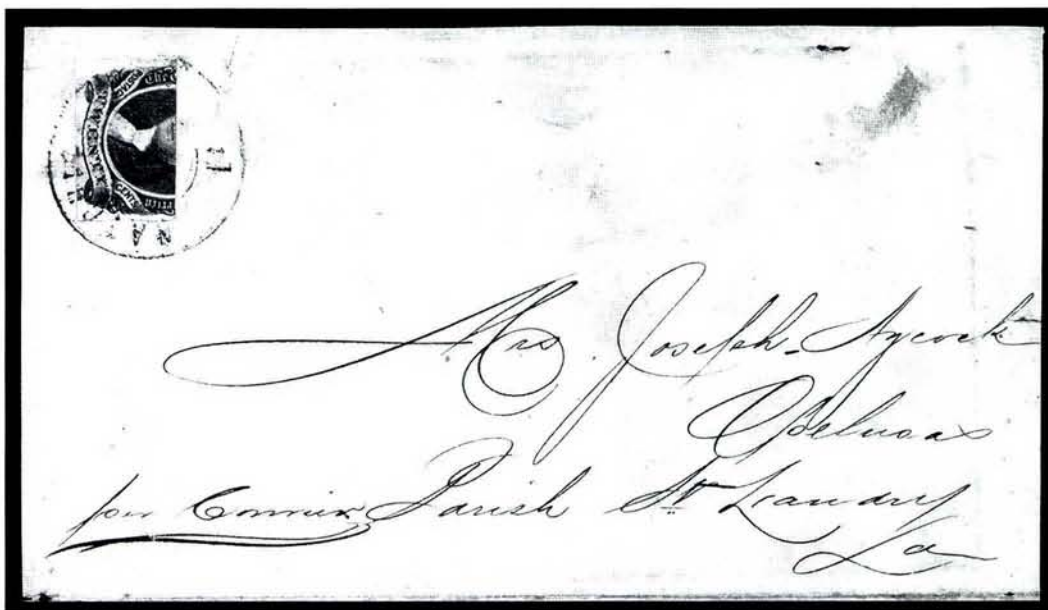 NAT
TWENTY
Mrs. Joseph Aycock
Opelusas
per Courier Parish St. Landry
La